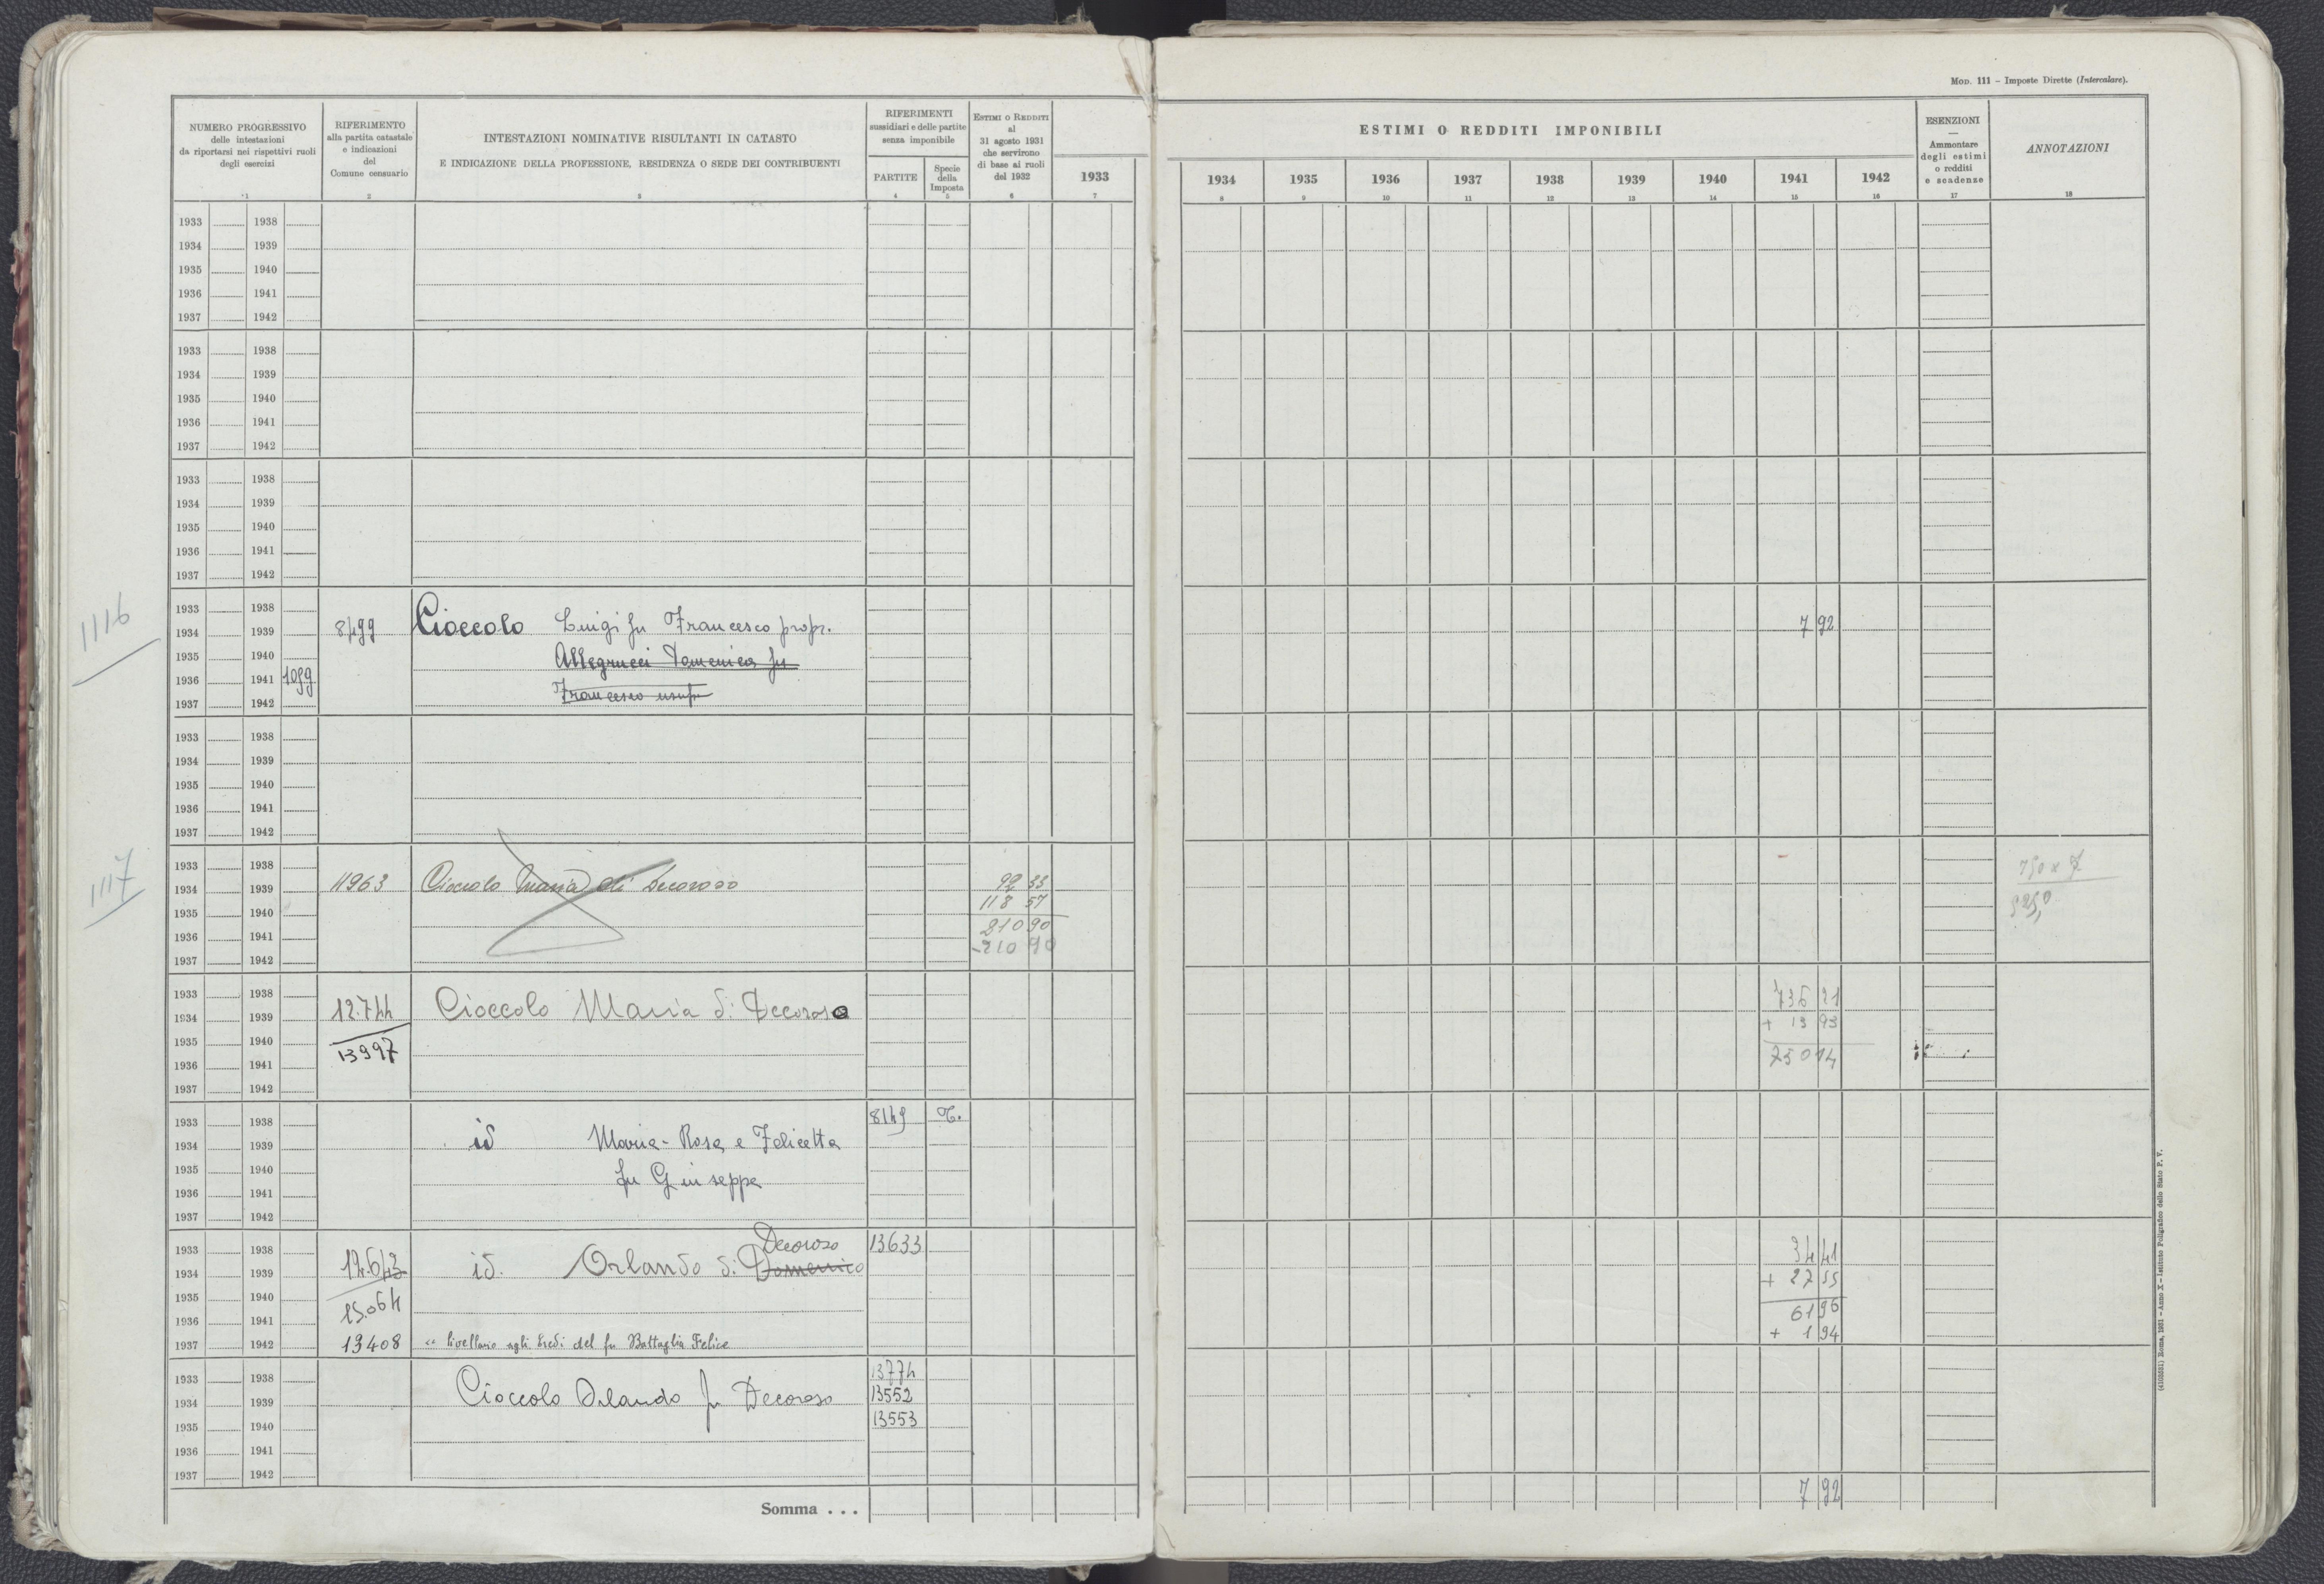 MOD. 111 – Imposte Dirette (Intercalare).
NUMERO PROGRESSIVO
delle intestazioni
da riportarsi nei rispettivi ruoli
degli esercizi
1
RIFERIMENTO
alla partita catastale
e indicazioni
del
Comune censuario
2
INTESTAZIONI NOMINATIVE RISULTANTI IN CATASTO
E INDICAZIONE DELLA PROFESSIONE, RESIDENZA O SEDE DEI CONTRIBUENTI
3
RIFERIMENTI
sussidiari e delle partite
senza imponibile
PARTITE
4
Specie
della
Imposta
5
ESTIMI O REDDITI
al
31 agosto 1931
che servirono
di base ai ruoli
del 1932
6
1933
7
ESTIMI O REDDITI IMPONIBILI
1934 1935 1936 1937 1938 1939 1940 1941 1942
8 9 10 11 12 13 14 15 16
ESENZIONI
—
Ammontare
degli estimi
o redditi
e scadenze
17
ANNOTAZIONI
18
1933 1938
1934 1939
1935 1940
1936 1941
1937 1942
1933 1938
1934 1939
1935 1940
1936 1941
1937 1942
1933 1938
1934 1939
1935 1940
1936 1941
1937 1942
1116
1933 1938
1934 1939 8499 Cioccolo Luigi fu Francesco propr. 7 92
1935 1940 Allegrucci Domenica fu
1936 1941 1099
1937 1942 Francesco usufr
1933 1938
1934 1939
1935 1940
1936 1941
1937 1942
1117
1933 1938
1934 1939 11963 Cioccolo Maria di Decoroso 92 33
1935 1940 118 57
1936 1941 210 90
1937 1942 -210 90
1933 1938 736 21
1934 1939 12.744 Cioccolo Maria di Decoroso + 13 93
1935 1940 13997
1936 1941 750 14
1937 1942
1933 1938 8149 T.
1934 1939 id Maria-Rosa e Felicetta
1935 1940
1936 1941 fu Giuseppe
1937 1942
Decoroso
1933 1938 13633 34 41
1934 1939 12.643 id. Orlando di Domenico + 27 55
1935 1940
1936 1941 15.064 61 96
1937 1942 13408 " livellario agli Eredi del fu Battaglia Felice + 1 94
1933 1938 13774
1934 1939 Cioccolo Orlando fu Decoroso 13552
1935 1940 13553
1936 1941
1937 1942
Somma . . . 7 92
(4105551) Roma, 1931 - Anno X - Istituto Poligrafico dello Stato P. V.